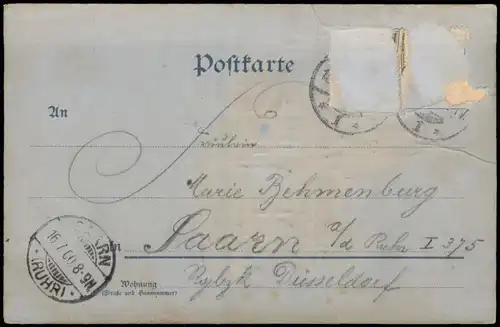 Postkarte
An
Fräulein
Marie Behmenburg
in Saarn a/d Ruhr I 375
Wohnung
(Straße und Hausnummer)
Rgbzk Düsseldorf
SAARN
16.7.00.8-9N.
(RUHR)